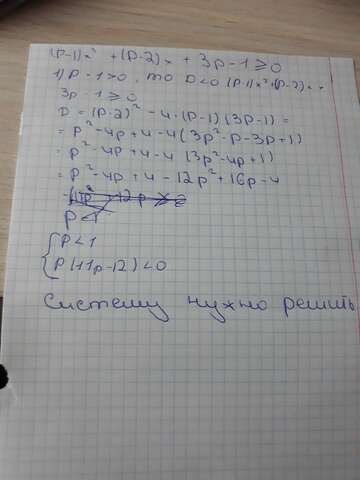 (p-1)x² + (p-2)x + 3p-1 ≥ 0
1) p-1>0, то D<0 (p-1)x²+(p-2)x +
3p-1 ≥ 0
D = (p-2)² - 4·(p-1)(3p-1) =
= p² - 4p + 4 - 4(3p² - p - 3p + 1)
= p² - 4p + 4 - 4(3p² - 4p + 1)
= p² - 4p + 4 - 12p² + 16p - 4
p<1
{p<1
p(11p-12)<0
систему нужно решить